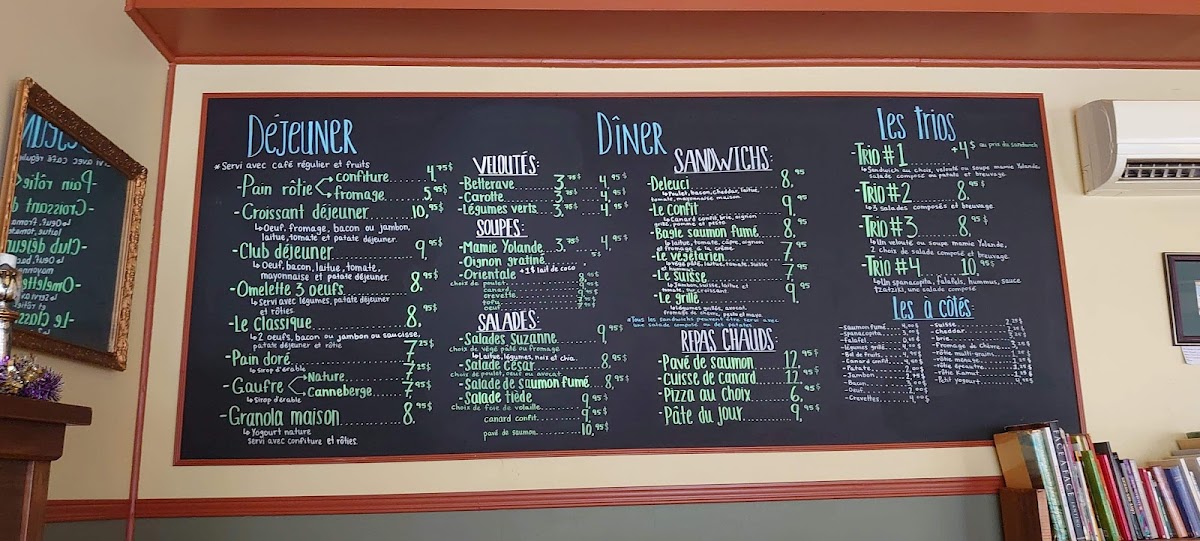 Déjeuner
*Servi avec café régulier et fruits
-Pain rôtie confiture 4,75$
fromage 5,95$
-Croissant déjeuner 10,95$
↳Oeuf, fromage, bacon ou jambon,
laitue, tomate et patate déjeuner.
-Club déjeuner 9,95$
↳Oeuf, bacon, laitue, tomate,
mayonnaise et patate déjeuner.
-Omelette 3 oeufs 8,95$
↳Servi avec légumes, patate déjeuner
et rôties
-Le Classique 8,95$
↳2 oeufs, bacon ou jambon ou saucisse,
patate déjeuner et rôtie
-Pain doré 7,25$
↳Sirop d'érable
-Gaufre Nature 7,25$
Canneberge 7,95$
↳Sirop d'érable
-Granola maison 8,95$
↳Yogourt nature
servi avec confiture et rôties.
Dîner
Veloutés:
-Betterave 3,75$ 4,95$
-Carotte 3,75$ 4,95$
-Légumes verts 3,75$ 4,95$
Soupes:
-Mamie Yolande 3,75$ 4,95$
-Oignon gratiné
-Orientale +1$ lait de coco
choix de poulet
canard
crevette
tofu
Salades:
-Salades Suzanne 9,95$
choix de végé pâté ou fromage
↳Laitue, légumes, noix et chia.
-Salade César 8,95$
choix de poulet, oeuf ou avocat
-Salade de saumon fumé 8,95$
-Salade tiède
choix de foie de volaille 9,95$
canard confit 9,95$
pavé de saumon 10,95$
Sandwichs:
-Deleuci 8,95
↳Poulet, bacon, cheddar, laitue,
tomate, mayonnaise maison
-Le confit 9,
↳Canard confit, brie, oignon
grillé, pomme et pesto
-Bagle saumon fumé 8,
↳laitue, tomate, câpre, oignon
et fromage à la crème
-Le végétarien 7,95
↳végé pâté, laitue, tomate, suisse
-Le suisse 7,95
↳Jambon, suisse, laitue et
tomate, sur croissant
-Le grillé 9,
↳légumes grillés, avocat,
fromage de chèvre, pesto et mayo
*Tous les sandwichs peuvent être servi avec
une salade composé ou des patates
Repas chauds
-Pavé de saumon 12,95$
-Cuisse de canard 12,95$
-Pizza au choix 6,95$
-Pâte du jour 9,95$
Les trios
-Trio #1 +4$ au prix du sandwich
↳Sandwich au choix, velouté ou soupe mamie Yolande,
salade composé ou patate et breuvage
-Trio #2 8,95$
↳3 salades composés et breuvage
-Trio #3 8,95$
↳Un velouté ou soupe mamie Yolande,
2 choix de salade composé et breuvage
-Trio #4 10,95$
↳Un spanacopita, falafels, hummus, sauce
tzatziki, une salade composé
Les à côtés:
-Saumon fumé
-Spanacopita
-Falafel
-légumes grillé
-Bol de fruits
-Canard confit
-Patate
-Jambon
-Bacon
-Oeuf
-Crevettes 4,00$
-Suisse
-Cheddar
-brie
-Fromage de chèvre
-rôtie multi-grains
-rôtie ménage
-rôtie épeautre
-rôtie Kamut
-Petit yogourt